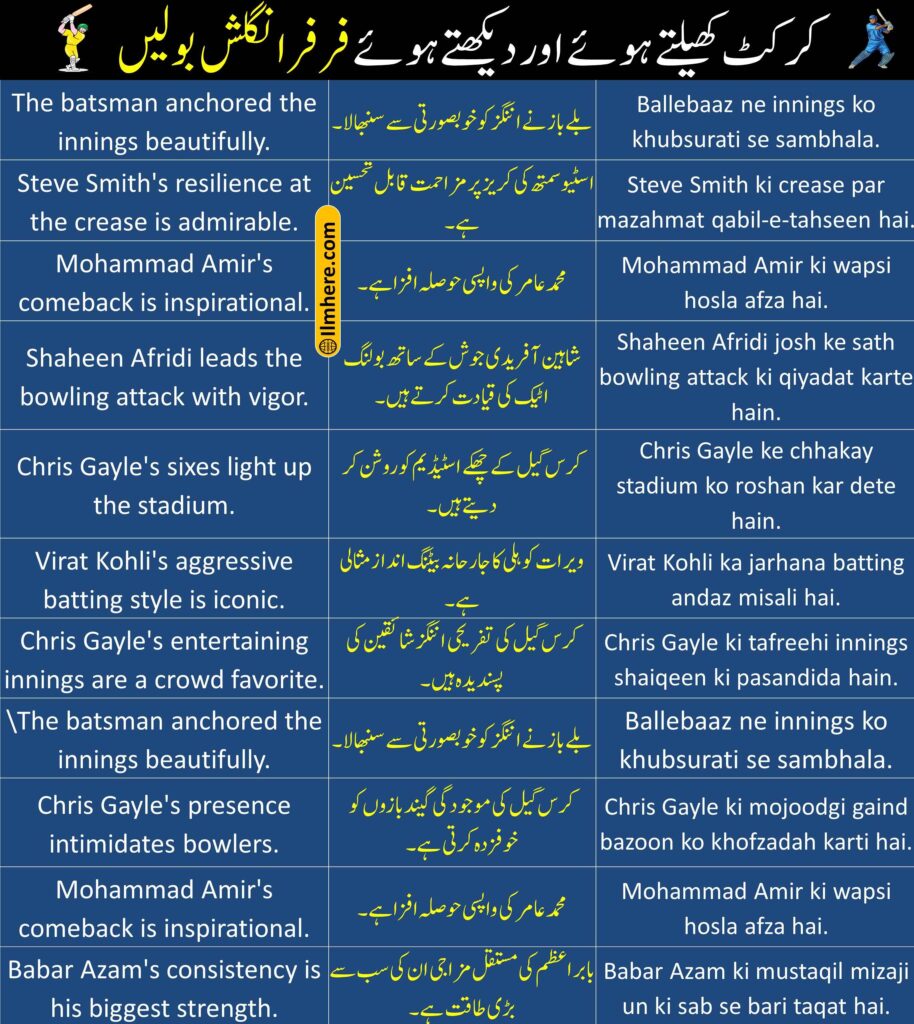 کرکٹ کھیلتے ہوئے اور دیکھتے ہوئے فر فر انگلش بولیں
The batsman anchored the
innings beautifully.
بلے باز نے اننگز کو خوبصورتی سے سنبھالا۔
Ballebaaz ne innings ko
khubsurati se sambhala.
Steve Smith's resilience at
the crease is admirable.
اسٹیو سمتھ کی کریز پر مزاحمت قابل تحسین
ہے۔
Steve Smith ki crease par
mazahmat qabil-e-tahseen hai.
ilmhere.com
Mohammad Amir's
comeback is inspirational.
محمد عامر کی واپسی حوصلہ افزا ہے۔
Mohammad Amir ki wapsi
hosla afza hai.
Shaheen Afridi leads the
bowling attack with vigor.
شاہین آفریدی جوش کے ساتھ بولنگ
اٹیک کی قیادت کرتے ہیں۔
Shaheen Afridi josh ke sath
bowling attack ki qiyadat karte
hain.
Chris Gayle's sixes light up
the stadium.
کرس گیل کے چھکے اسٹیڈیم کو روشن کر
دیتے ہیں۔
Chris Gayle ke chhakay
stadium ko roshan kar dete
hain.
Virat Kohli's aggressive
batting style is iconic.
ویرات کوہلی کا جارحانہ بیٹنگ انداز مثالی
ہے۔
Virat Kohli ka jarhana batting
andaz misali hai.
Chris Gayle's entertaining
innings are a crowd favorite.
کرس گیل کی تفریحی اننگز شائقین کی
پسندیدہ ہیں۔
Chris Gayle ki tafreehi innings
shaiqeen ki pasandida hain.
\The batsman anchored the
innings beautifully.
بلے باز نے اننگز کو خوبصورتی سے سنبھالا۔
Ballebaaz ne innings ko
khubsurati se sambhala.
Chris Gayle's presence
intimidates bowlers.
کرس گیل کی موجودگی گیند بازوں کو
خوفزدہ کرتی ہے۔
Chris Gayle ki mojoodgi gaind
bazoon ko khofzadah karti hai.
Mohammad Amir's
comeback is inspirational.
محمد عامر کی واپسی حوصلہ افزا ہے۔
Mohammad Amir ki wapsi
hosla afza hai.
Babar Azam's consistency is
his biggest strength.
بابر اعظم کی مستقل مزاجی ان کی سب سے
بڑی طاقت ہے۔
Babar Azam ki mustaqil mizaji
un ki sab se bari taqat hai.